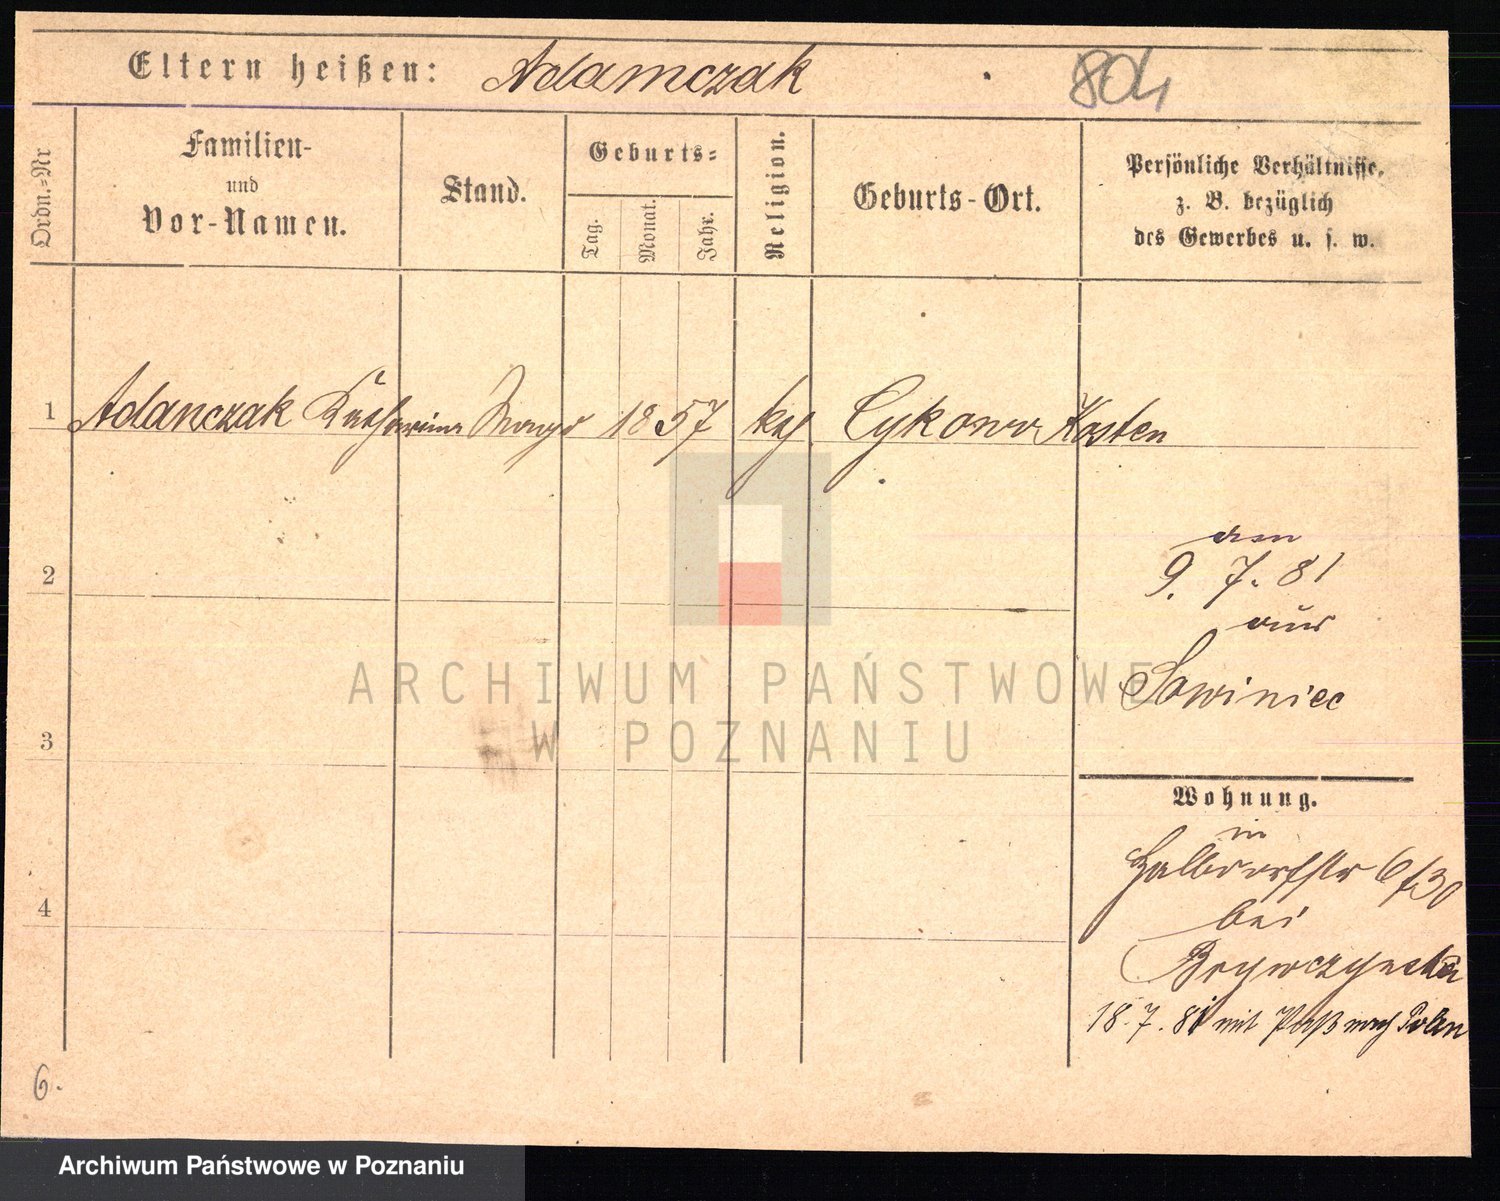 Eltern heißen: Adamczak
804
Ordn.=Nr
Familien-
und
Vor-Namen.
Stand.
Geburts=
Tag.
Monat.
Jahr.
Religion.
Geburts-Ort.
Persönliche Verhältnisse,
z. B. bezüglich
des Gewerbes u. s. w.
1 Adamczak Katharina Magd 1857 kth Cykowo Kosten
2
am
9. 7. 81
aus
Sowiniec
3
Wohnung.
in
Halbdorfstr 6/30
bei
4
18. 7. 81 mit Paß nach Polen
6.
ARCHIWUM PAŃSTWOWE
W POZNANIU
Archiwum Państwowe w Poznaniu